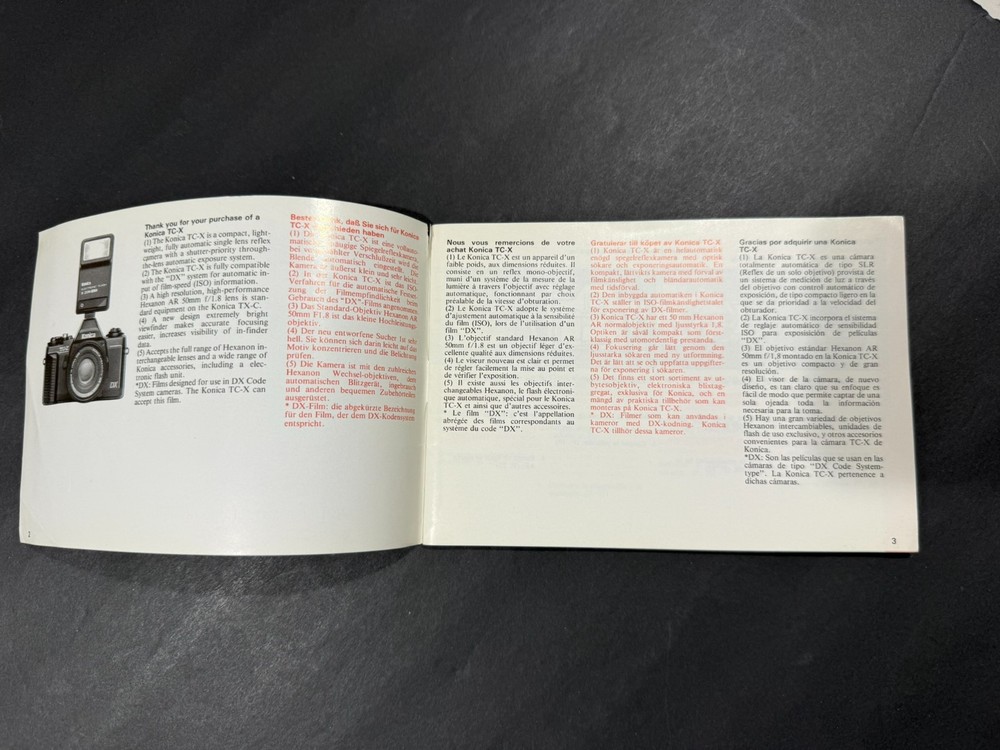 Thank you for your purchase of a
Konica TC-X
(1) The Konica TC-X is a compact, light-
weight, fully automatic single lens reflex
camera with a shutter-priority through-
the-lens automatic exposure system.
(2) The Konica TC-X is fully compatible
with the "DX" system for automatic in-
put of film-speed (ISO) information.
(3) A high resolution, high-performance
Hexanon AR 50mm f/1.8 lens is stan-
dard equipment on the Konica TX-C.
(4) A new design extremely bright
viewfinder makes accurate focusing
easier, increases visibility of in-finder
data.
(5) Accepts the full range of Hexanon in-
terchangeable lenses and a wide range of
Konica accessories, including a elec-
tronic flash unit.
*DX: Films designed for use in DX Code
System cameras. The Konica TC-X can
accept this film.
DX
1
daß Sie sich für Konica
TC-X haben
(1) Die Konica TC-X ist eine
Spiegelreflexkamera,
bei Verschlußzeit wird die
Blende automatisch eingestellt. Die
Kamera ist äußerst klein und sehr leicht.
(2) In der Konica TC-X ist das ISO-
Verfahren für die automatische
der Filmempfindlichkeit beim
Gebrauch des "DX"-Films angenommen.
(3) Das Standard-Objektiv Hexanon AR
50mm F1.8 ist das kleine Hochleistungs-
objektiv.
(4) Der neu entworfene Sucher ist sehr
hell. Sie können sich darin leicht auf das
Motiv konzentrieren und die Belichtung
prüfen.
(5) Die Kamera ist mit den zahlreichen
Hexanon Wechsel-objektiven, dem
automatischen Blitzgerät,
und anderen bequemen Zubehörteilen
ausgerüstet.
* DX-Film: die abgekürzte Bezeichnung
für den Film, der dem DX-Kodesystem
entspricht.
Nous vous remercions de votre
achat Konica TC-X
(1) Le Konica TC-X est un appareil d'un
faible poids, aux dimensions réduites. Il
consiste en un reflex mono-objectif,
muni d'un système de la mesure de la
lumière à travers l'objectif avec réglage
automatique, fonctionnant par choix
préalable de la vitesse d'obturation.
(2) Le Konica TC-X adopte le système
d'ajustement automatique à la sensibilité
du film (ISO), lors de l'utilisation d'un
film "DX".
(3) L'objectif standard Hexanon AR
50mm f/1.8 est un objectif léger d'ex-
cellente qualité aux dimensions réduites.
(4) Le viseur nouveau est clair et permet
de régler facilement la mise au point et
de vérifier l'exposition.
(5) Il existe aussi les objectifs inter-
changeables Hexanon, le flash électroni-
que automatique, spécial pour le Konica
TC-X et ainsi que d'autres accessoires.
* Le film "DX": c'est l'appellation
abrégée des films correspondants au
système du code "DX".
Gratulerar till köpet av Konica TC-X
(1) Konica TC-X är en helautomatisk
enögd spegelreflexkamera med optisk
sökare och exponeringsautomatik. En
kompakt, lättviktskamera med förval av
filmkänslighet och bländarautomatik
med tidsförval.
(2) Den inbyggda automatiken i Konica
TC-X ställer in ISO-filmkänslighetstalet
för exponering av DX-filmer.
(3) Konica TC-X har ett 50 mm Hexanon
AR normalobjektiv med ljusstyrka 1,8.
Optiken är såväl kompakt som först-
klassig med utomordentlig prestanda.
(4) Fokusering går lätt genom den
ljusstarka sökaren med ny utformning.
Det är lätt att se och uppfatta uppgifter-
na för exponering i sökaren.
(5) Det finns ett stort sortiment av ut-
bytesobjektiv, elektroniska blixtag-
gregat, exklusiva för Konica, och en
mängd av praktiska tillbehör som kan
monteras på Konica TC-X.
* DX: Filmer som kan användas i
kameror med DX-kodning. Konica
TC-X tillhör dessa kameror.
Gracias por adquirir una Konica
TC-X
(1) La Konica TC-X es una cámara
totalmente automática de tipo SLR
(Reflex de un solo objetivo) provista de
un sistema de medición de luz a través
del objetivo con control automático de
exposición, de tipo compacto ligero en la
que se da prioridad a la velocidad del
obturador.
(2) La Konica TC-X incorpora el sistema
de reglaje automático de sensibilidad
ISO para exposición de películas
"DX".
(3) El objetivo estándar Hexanon AR
50mm f/1,8 montado en la Konica TC-X
es un objetivo compacto y de gran
resolución.
(4) El visor de la cámara, de nuevo
diseño, es tan claro que su enfoque es
fácil de modo que permite captar de una
sola ojeada toda la información
necesaria para la toma.
(5) Hay una gran variedad de objetivos
Hexanon intercambiables, unidades de
flash de uso exclusivo, y otros accesorios
convenientes para la cámara TC-X de
Konica.
*DX: Son las películas que se usan en las
cámaras de tipo "DX Code System-
type". La Konica TC-X pertenence a
dichas cámaras.
3